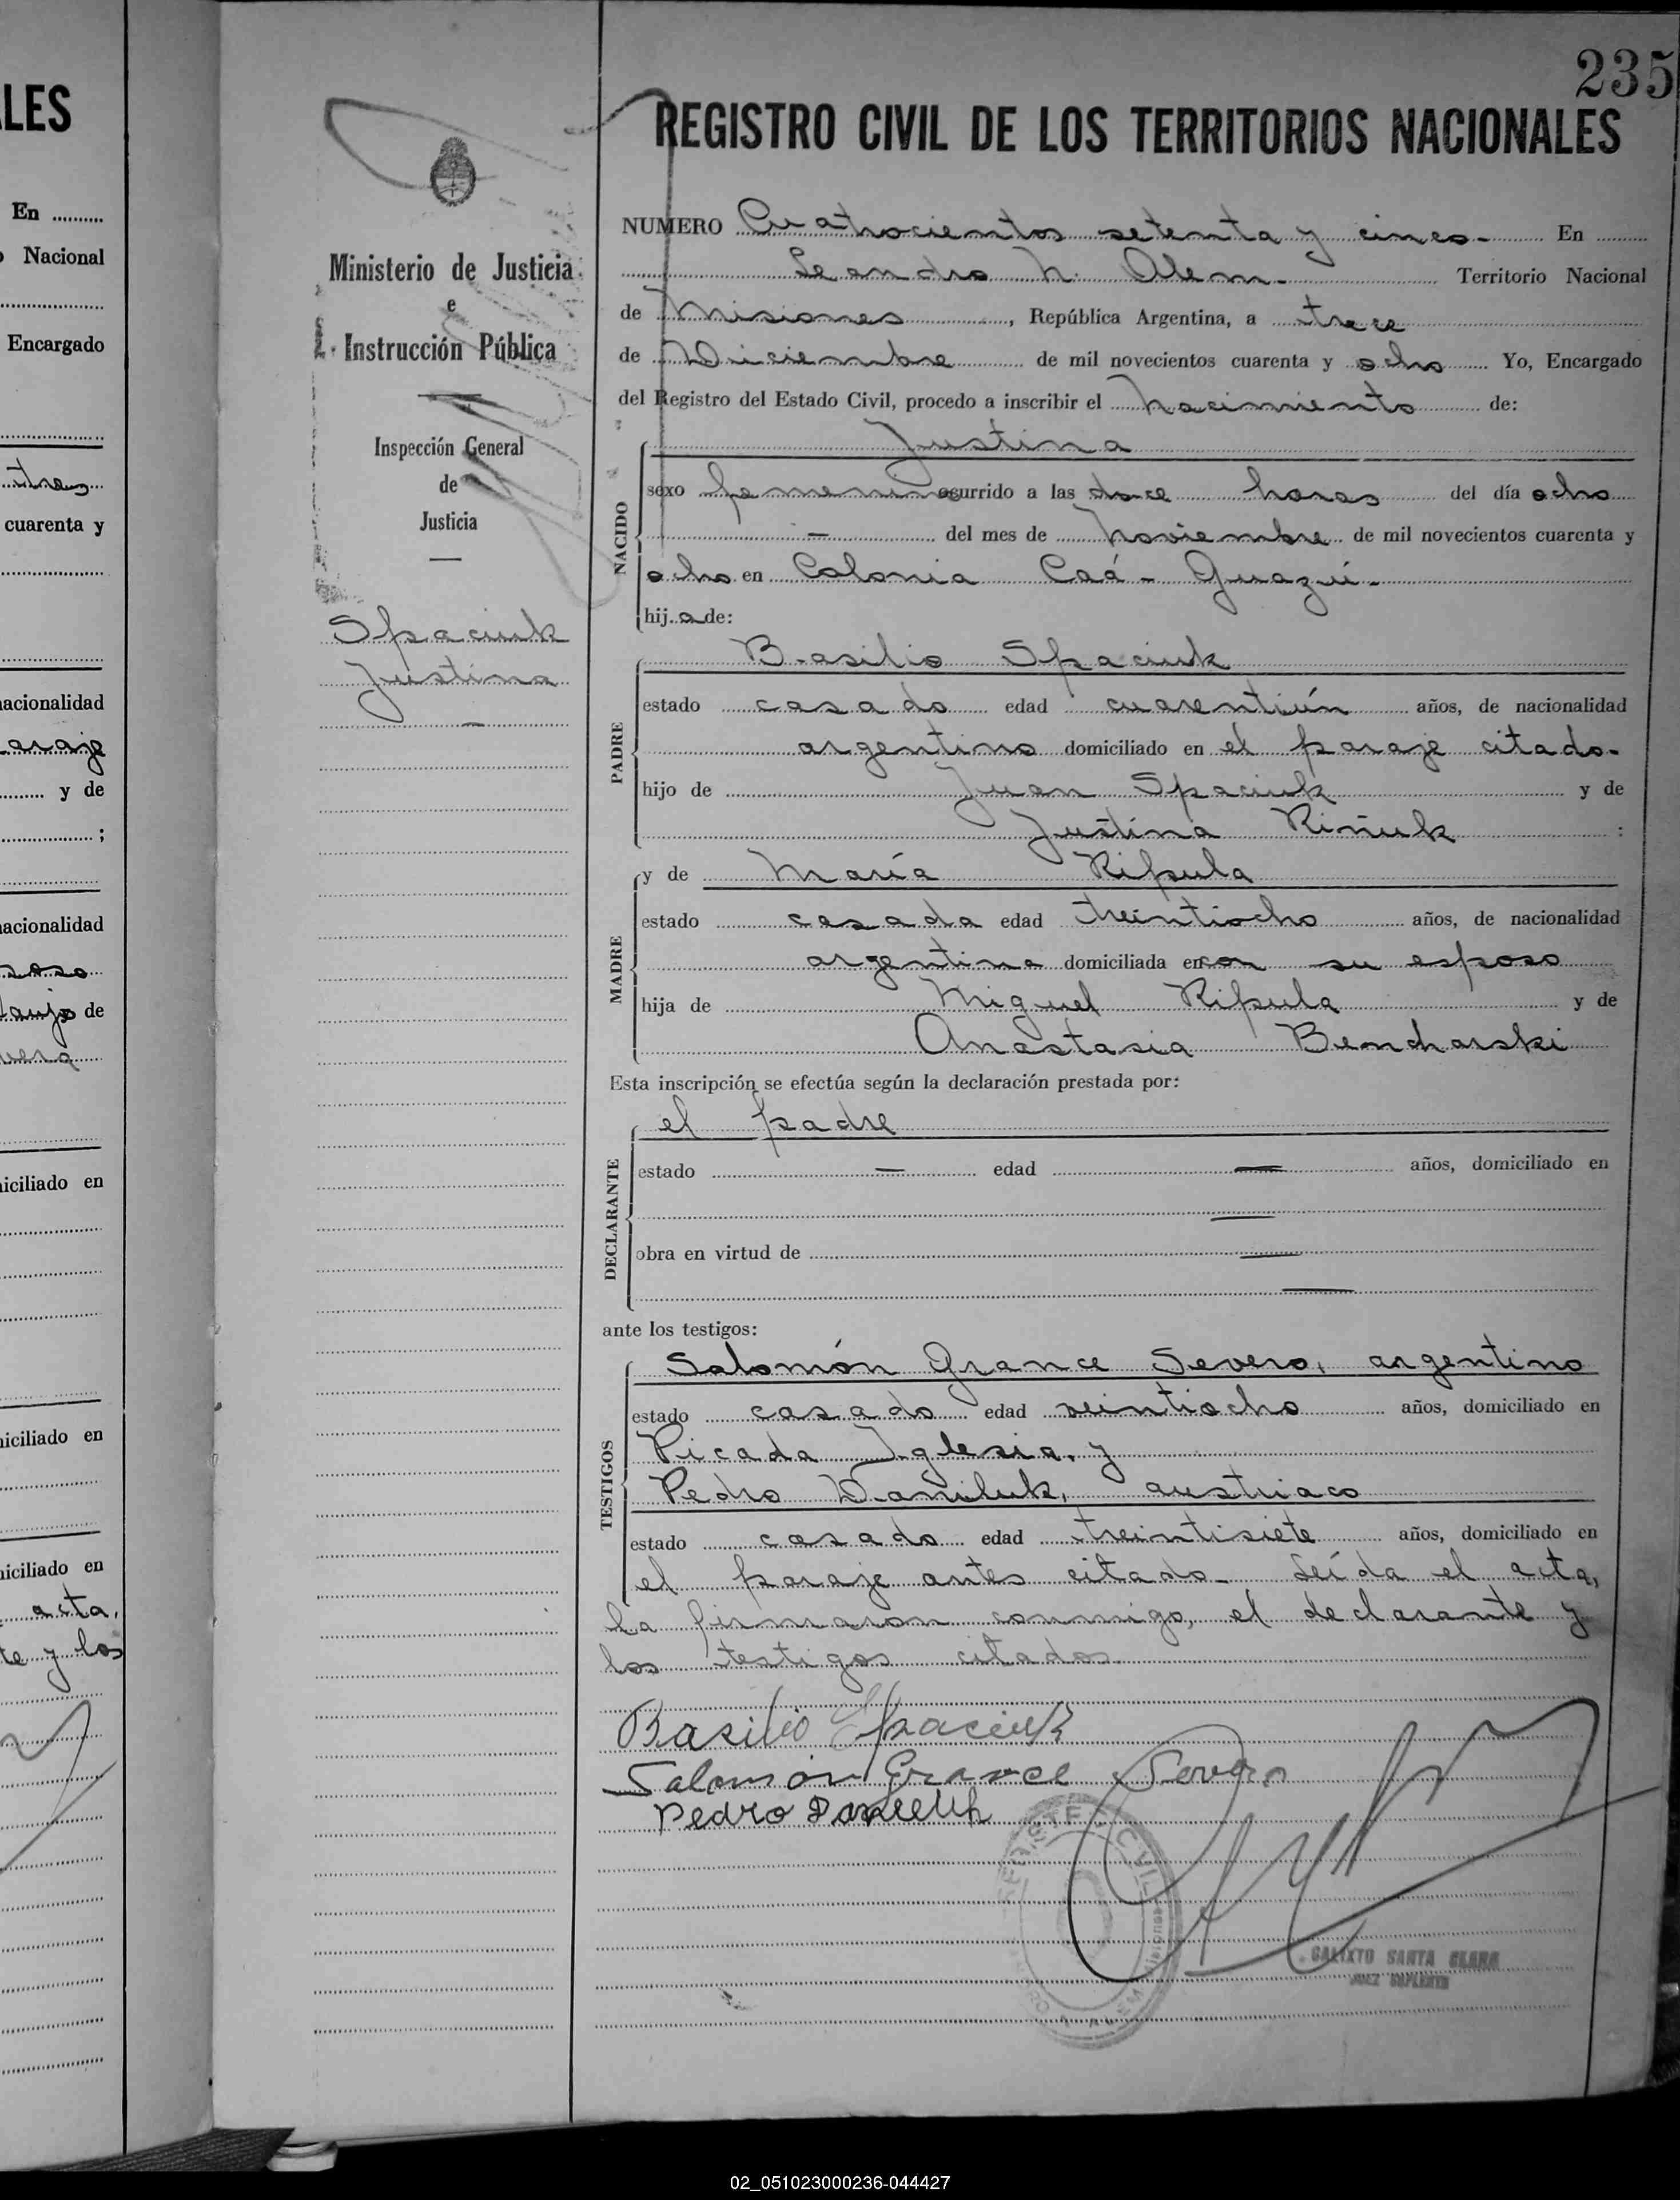 235
LES
REGISTRO CIVIL DE LOS TERRITORIOS NACIONALES
En
Nacional
Encargado
tres
cuarenta y
nacionalidad
paraje
y de
;
nacionalidad
esposo
de
iciliado en
iciliado en
iciliado en
acta,
te y los
Ministerio de Justicia
e
Instrucción Pública
Inspección General
de
Justicia
Spaciuk
Justina
NUMERO Cuatrocientos setenta y cinco.- En
Leandro N. Alem.- Territorio Nacional
de Misiones, República Argentina, a trece
de Diciembre de mil novecientos cuarenta y ocho Yo, Encargado
del Registro del Estado Civil, procedo a inscribir el Nacimiento de:
NACIDO
Justina
sexo femenino ocurrido a las doce horas del día ocho
— del mes de Noviembre de mil novecientos cuarenta y
ocho en Colonia Caá-Guazú.-
hija de:
PADRE
Basilio Spaciuk
estado casado edad cuarentiún años, de nacionalidad
argentino domiciliado en el paraje citado.-
hijo de Juan Spaciuk y de
Justina Riñuk :
MADRE
y de María Ripula
estado casada edad treintiocho años, de nacionalidad
argentina domiciliada en con su esposo
hija de Miguel Ripula y de
Anastasia Bencharski
Esta inscripción se efectúa según la declaración prestada por:
DECLARANTE
el padre
estado — edad — años, domiciliado en
—
obra en virtud de —
—
ante los testigos:
TESTIGOS
Salomón Grance Severo, argentino
estado casado edad veintiocho años, domiciliado en
Picada Iglesia, y
Pedro Daniluk, austriaco
estado casado edad treintisiete años, domiciliado en
el paraje antes citado.- Leída el acta,
la firmaron conmigo, el declarante y
los testigos citados.
Basilio Spaciuk
Salomón Grance Severo
Pedro
CALIXTO SANTA CLARA
JUEZ SUPLENTE
02_051023000236-044427